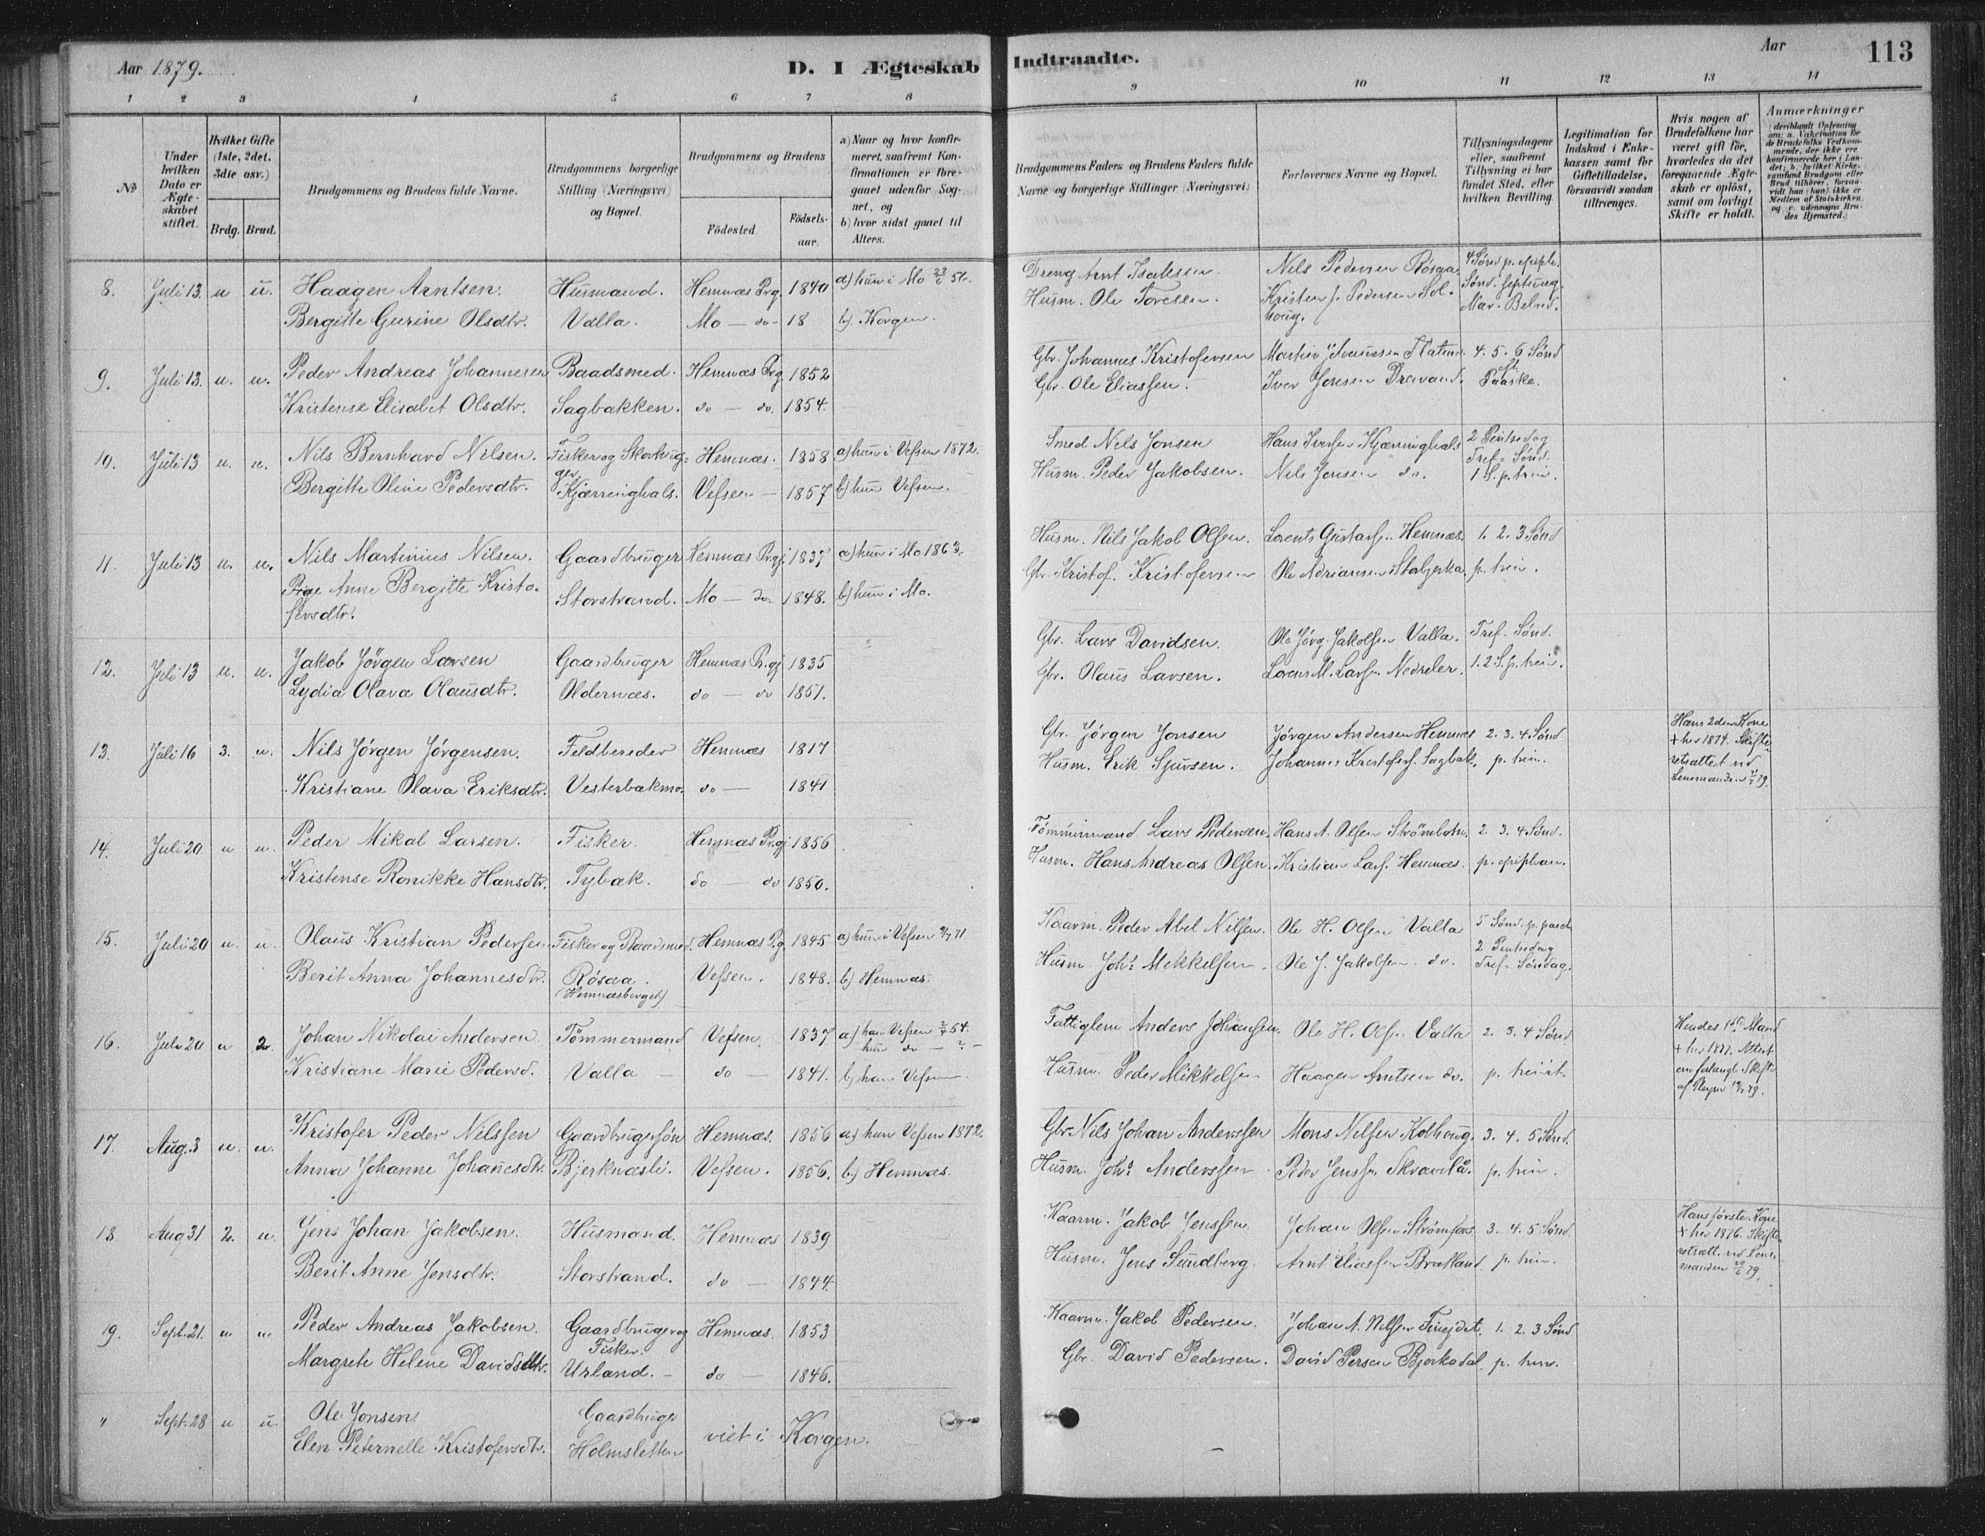 Aar 1879.
D. I Ægteskab Indtraadte.
Aar
113
1 2 3 4 5 6 7 8 9 10 11 12 13 14
No
Under hvilken Dato er Ægteskabet stiftet.
Hvilket Gifte (1ste, 2det, 3die osv.)
Brdg. Brud.
Brudgommens og Brudens fulde Navne.
Brudgommens borgerlige Stilling (Næringsvei) og Bopæl.
Brudgommens og Brudens
Födested. Födselsaar.
a) Naar og hvor konfirmeret, saafremt Konfirmationen er foregaaet udenfor Sognet, og
b) hvor sidst gaaet til Alters.
Brudgommens Faders og Brudens Faders fulde Navne og borgerlige Stillinger (Næringsvei)
Forlovernes Navne og Bopæl.
Tillysningsdagene eller, saafremt Tillysning ei har fundet Sted, efter hvilken Bevilling.
Legitimation for Indskud i Enkekassen samt for Giftetilladelse, forsaavidt saadan tiltrænges.
Hvis nogen af Brudefolkene har været gift før, hvorledes da det foregaaende Ægteskab er oplöst, samt om lovligt Skifte er holdt.
Anmærkninger
8. Juli 13. u u. Haagen Arntsen. Husmand. Hemnæs Prg. 1840 a) hun i Mo 56. Dreng Arnt Isaksen. Nils Pedersen Røsaa 4 Sønd. p. epiph.
Bergitte Gurine Olsdtr. Valla. Mo — do 18 b). Korgen. Husm. Ole Toresen. Kristen J. Pedersen Solhoug. Sønd. septuag Mar. Bebud.
9. Juli 13. u. u. Peder Andreas Johannesen Baadsmed. Hemnæs Prg 1852 Gbr. Johannes Kristofersen 4. 5. 6 Sønd
Kristense Elisabet Olsdtr. Sagbakken. do — do. 1854. Gbr. Ole Eliassen. Iver Jonsen Drevand. eft. Paaske.
10. Juli 13 u. u. Nils Bernhard Nilsen. Fisker og Hemnæs. 1858 a) hun i Vefsen 1872. Smed Nils Jonsen Hans Kjærringhals 2 Pintsedag
Bergitte Oline Pedersdtr. Kjærringhals. Vefsen — 1857 b) hun Vefsen. Husm. Peder Jakobsen. Nils Jonsen do. Tref. Sønd. 1 S. p. trin.
11. Juli 13 u. u. Nils Martinius Nilsen. Gaardbruger Hemnæs Prgj. 1837 a) hun i Mo 1863. Husm. Nils Jakob Olsen. Lorents Gustavs. Hemnæs. 1. 2. 3 Sønd
Pige Anne Bergitte Kristofersdtr. Storstrand. Mo — do. 1848. b) hun i Mo. Gbr. Kristof. Kristofersen Ole Adriansen p. trin.
12. Juli 13 u. u. Jakob Jørgen Larsen Gaardbruger Hemnæs Pr.gj 1835 Gbr. Lars Davidsen. Ole Jørg. Jakobsen Valla. Tref. Sønd.
Lydia Olava Olausdtr. Oldernæs. do — do 1851. Gbr. Olaus Larsen. Lorens M. Larsen 1. 2 S. p. trin.
13. Juli 16 3. u. Nils Jørgen Jørgensen. Feldbereder Hemnæs 1817 Gbr. Jørgen Jonsen Jørgen Andersen Hemnæs 2. 3. 4 Sønd Hans 2den Kone + her 1874. Skifteretsattest
Kristiane Olava Eriksdtr. Vesterbakmo. do — 1841 Husm. Erik Sjursen. Johannes Kristofers. Sagbak. p. trin. Lensmanden 79.
14. Juli 20. u u. Peder Mikal Larsen. Fisker. Hemnæs Pr.gj 1856 Tømmermand Lars Pedersen. Hans A. Olsen 2. 3. 4 Sønd.
Kristense Ronikke Hansdtr. Tybak. do — do 1850. Husm. Hans Andreas Olsen. Kristian Lars. Hemnæs. p. epiphan.
15. Juli 20 u. u. Olaus Kristian Pedersen. Fisker og Baadsmed. Hemnæs Prg 1845 a) hun i Vefsen 71 Kaarm. Peder Abel Nilsen. Ole H. Olsen Valla 5 Sønd. p. pasch
Berit Anna Johannesdtr. Røsaa. (Hemnæsberget) Vefsen. 1848. b) Hemnæs. Husm. Johs. Mekkelsen. Ole J. Jakobsen do. 2 Pintsedag Tref. Søndag.
16. Juli 20 u 2. Johan Nikolai Andersen Tømmermand Vefsen 1837 a) han Vefsen 54. hun do — ? — Fattiglem Anders Johansen Ole H. Olsen Valla 2. 3. 4 Sønd Hendes 1ste Mand + her 1877. Attest om forlangt Skifte
Kristiane Marie Pedersd. Valla — do — 1841. b) han Vefsen Husm. Peder Mikkelsen Haagen Arntsen do. p. trinit. 79.
17. Aug. 3 u. u. Kristofer Peder Nilssen Gaardbrugersøn Hemnæs. 1856 a) hun Vefsen 1872. Gbr. Nils Johan Anderssen Mons Nelsen Kolhoug. 3. 4. 5 Sønd.
Anna Johanne Johanesdtr. Bjerknæsli. Vefsen. 1856. b) Hemnæs. Husm. Johs Anderssen Peder Jenssen Skravlå. p. trin.
18. Aug 31 2. u. Jens Johan Jakobsen. Husmand. Hemnæs 1839 Kaarm. Jakob Jenssen Johan Olsen Strømfors 3. 4. 5 Sønd Hans første Kone + her 1876. Skifteretsatt.
Berit Anne Jensdtr. Storstrand. do — 1844. Husm. Jens Sundberg. Arnt Eliassen Bratland. p. trin. manden 79.
19. Sept. 21. u u Peder Andreas Jakobsen. Gaardbruger og Fisker. Hemnæs. 1853 Kaarm. Jakob Pedersen. Johan A. Nilsen 1. 2. 3 Sønd
Margrete Helene Davidsdtr. Urland. — do — 1846. Gbr. David Pedersen. David Persen Bjerkadal. p. trin.
" Sept. 28 u u. Ole Jonsen. Gaardbruger viet i Korgen.
Elen Peternelle Kristofersdtr. Holmsletten